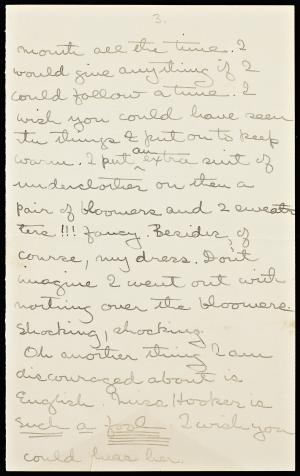 3.
mouth all the time. I
would give anything if I
could follow a tune. I
wish you could have seen
the things I put on to keep
warm. I put an extra suit of
underclothes on then a
pair of bloomers and 2 sweat-
ters!!! Fancy. Besides, of
course, my dress. Don't
imagine I went out with
nothing over the bloomers.
Shocking, shocking.
Oh another thing I am
discouraged about is
English. Miss Hooker is
such a fool. I wish you
could hear her.